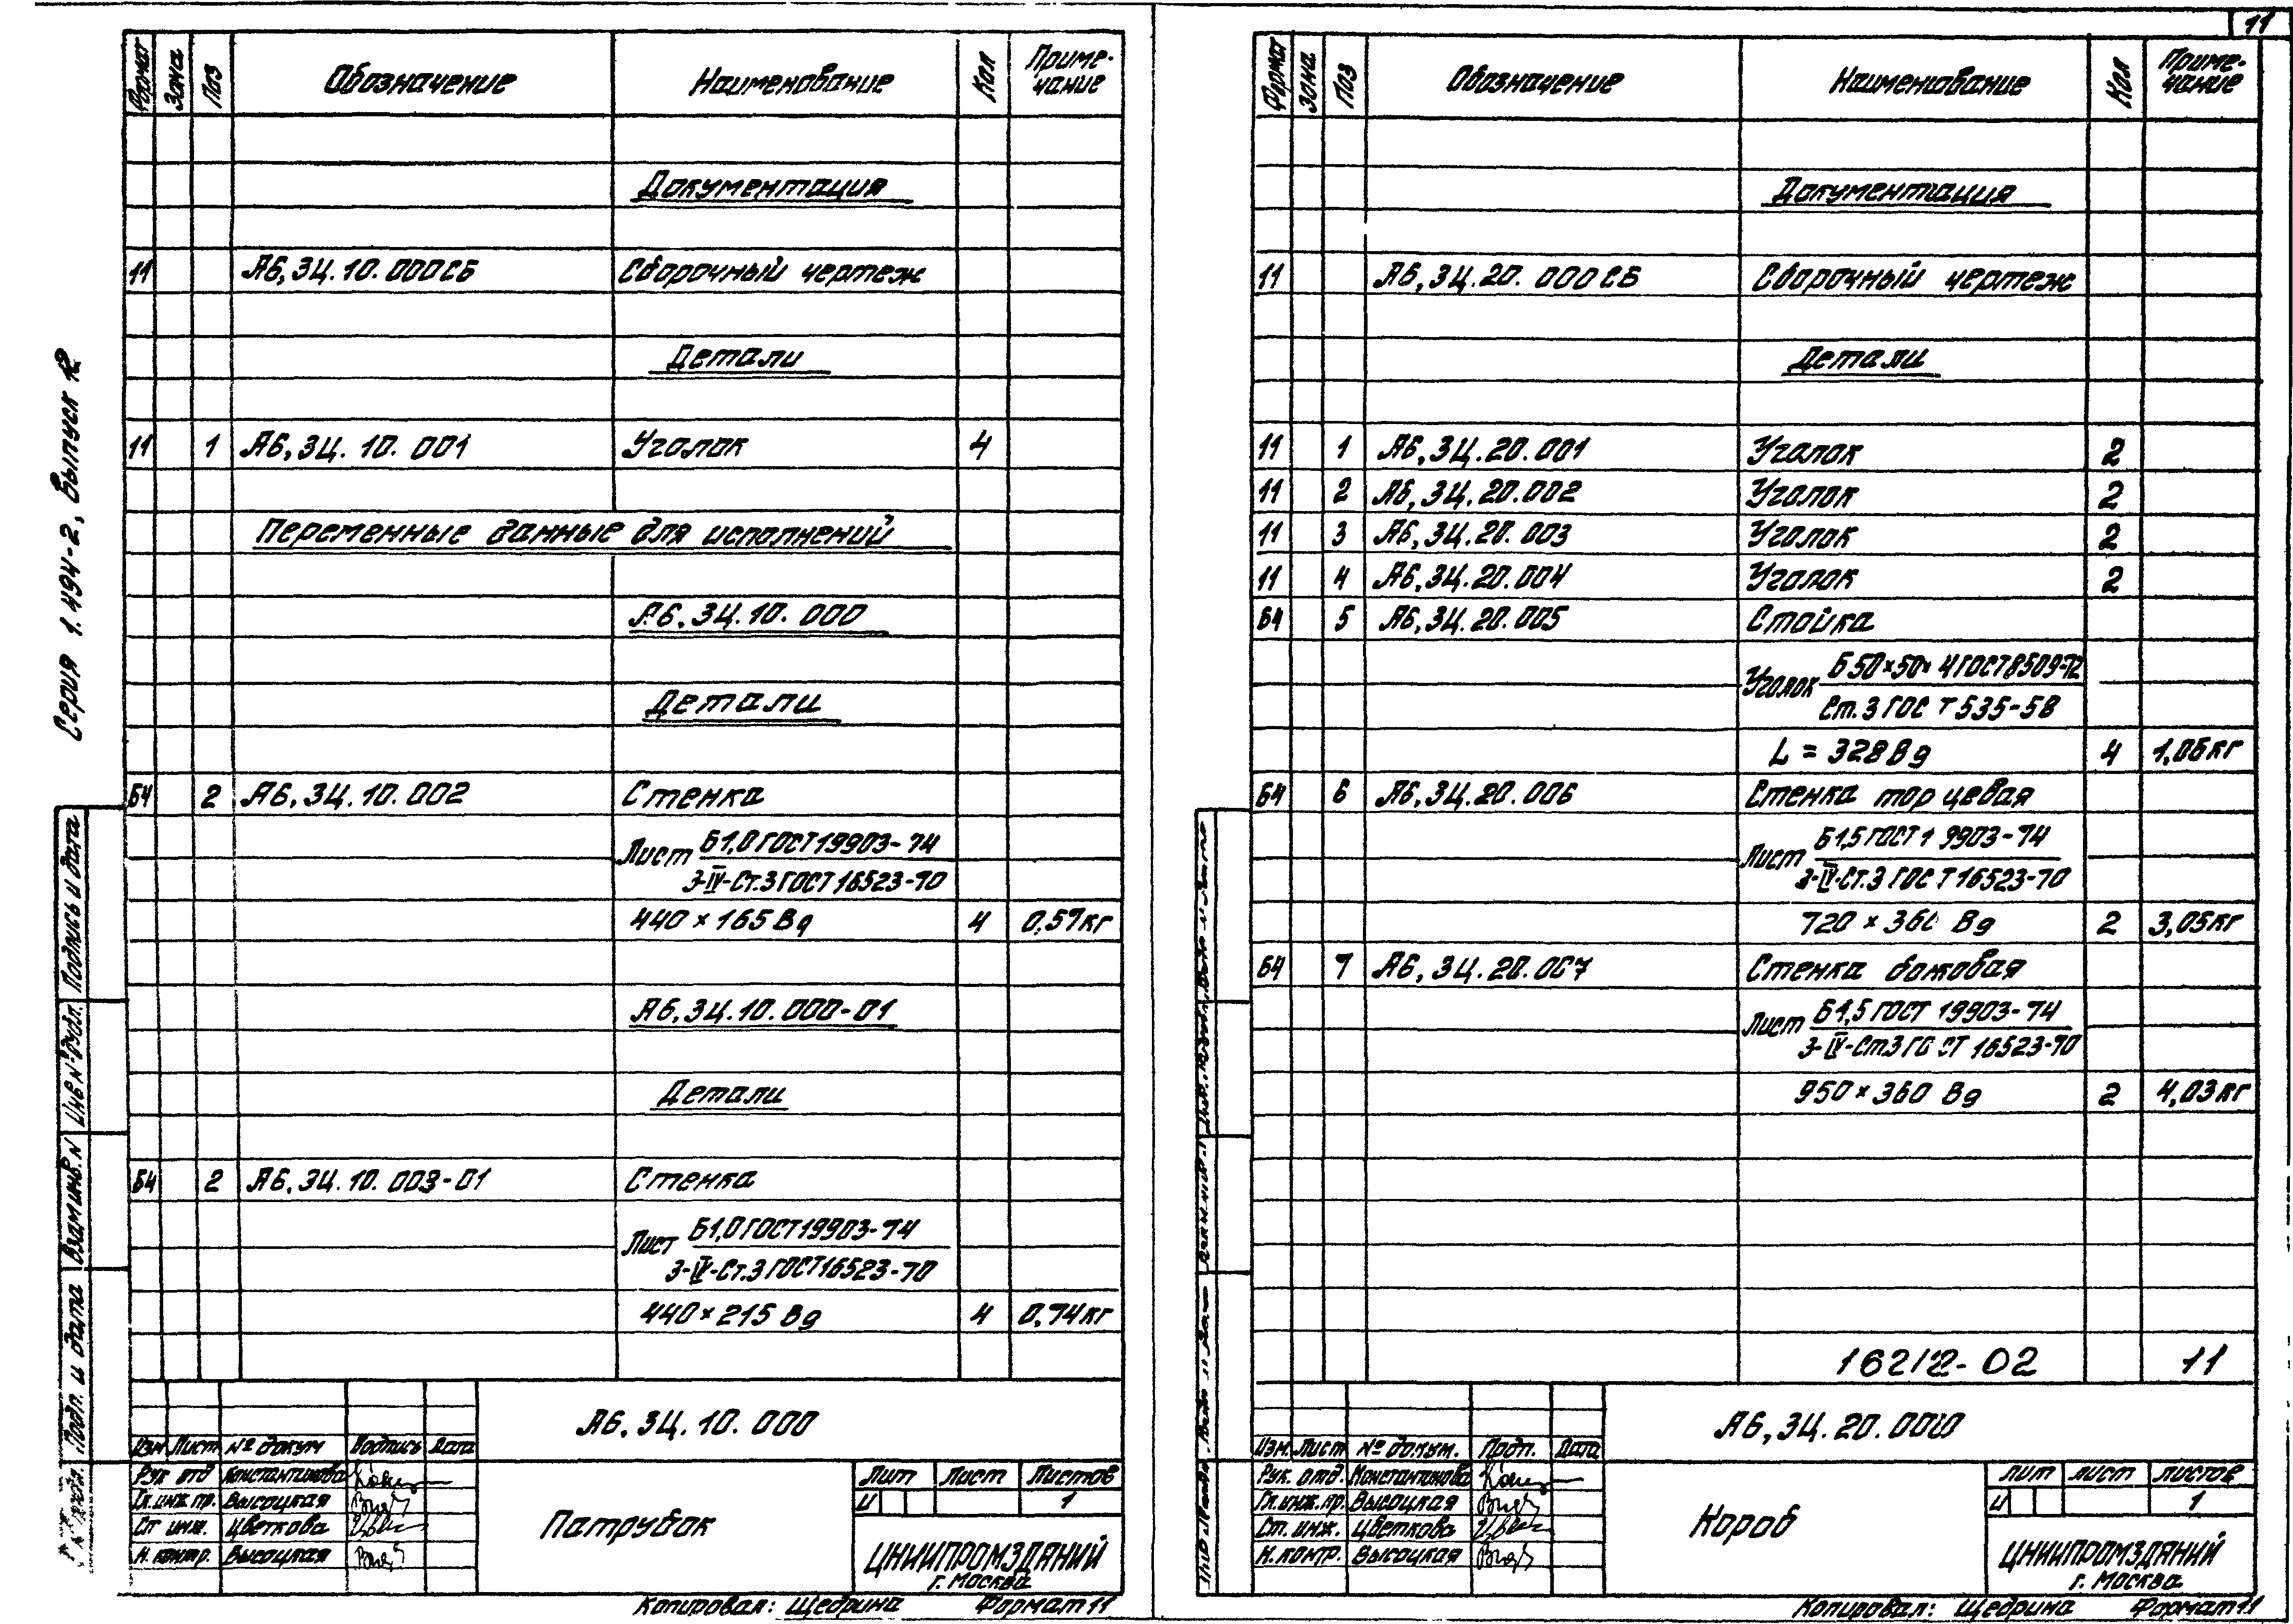 11
Серия 1.494-2, Выпуск 12
Формат Зона Поз Обозначение Наименование Кол Приме-
чание
Документация
11 А6,3Ц.10.000СБ Сборочный чертеж
Детали
11 1 А6,3Ц.10.001 Уголок 4
Переменные данные для исполнений
А6,3Ц.10.000
Детали
Б4 2 А6,3Ц.10.002 Стенка
Лист Б1,0 ГОСТ 19903-74
3-IV-Ст.3 ГОСТ 16523-70
440×165 Вд 4 0,57кг
А6,3Ц.10.000-01
Детали
Б4 2 А6,3Ц.10.003-01 Стенка
Лист Б1,0 ГОСТ 19903-74
3-IV-Ст.3 ГОСТ 16523-70
440×215 Вд 4 0,74кг
Подпись и дата
Инв № дубл.
Взам.инв.N
Подп. и дата
А6,3Ц.10.000
Изм Лист № докум Подпись Дата
Рук отд Константинова
Гл.инж пр. Высоцкая
Ст инж. Цветкова
Н.контр. Высоцкая
Патрубок
Лит Лист Листов
И 1
ЦНИИПРОМЗДАНИЙ
г. Москва
Копировал: Щедрина Формат 11
Формат Зона Поз Обозначение Наименование Кол Приме-
чание
Документация
11 А6,3Ц.20.000СБ Сборочный чертеж
Детали
11 1 А6,3Ц.20.001 Уголок 2
11 2 А6,3Ц.20.002 Уголок 2
11 3 А6,3Ц.20.003 Уголок 2
11 4 А6,3Ц.20.004 Уголок 2
Б4 5 А6,3Ц.20.005 Стойка
Уголок Б 50×50×4 ГОСТ 8509-72
Ст.3 ГОСТ 535-58
L = 328 Вд 4 1,06кг
Б4 6 А6,3Ц.20.006 Стенка торцевая
Лист Б1,5 ГОСТ 19903-74
3-IV-Ст.3 ГОСТ 16523-70
720×360 Вд 2 3,05кг
Б4 7 А6,3Ц.20.007 Стенка боковая
Лист Б1,5 ГОСТ 19903-74
3-IV-Ст3 ГОСТ 16523-70
950×360 Вд 2 4,03кг
16212-02 11
А6,3Ц.20.000
Изм. Лист № докум. Подп. Дата
Рук. отд. Константинова
Гл.инж.пр. Высоцкая
Ст. инж. Цветкова
Н.контр. Высоцкая
Короб
Лит Лист Листов
И 1
ЦНИИПРОМЗДАНИЙ
г. Москва
Копировал: Щедрина Формат 11